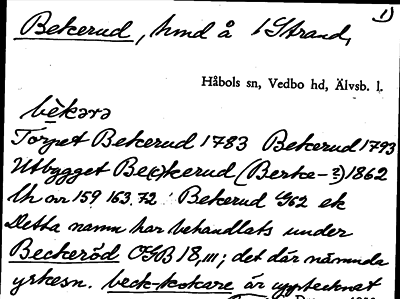 1)
Bekerud, hmd å 1 Strand,
Håbols sn, Vedbo hd, Älvsb. l.
bèkərə
Torpet Bekerud 1783 Bekerud 1793
Utbygget Be(c)kerud (Berke-?) 1862
Lh nr 159 163.72 Bekerud G62 ek
Detta namn har behandlats under
Beckeröd OGB 18,III; det där nämnda
yrkesn. beck-kokare är upptecknat